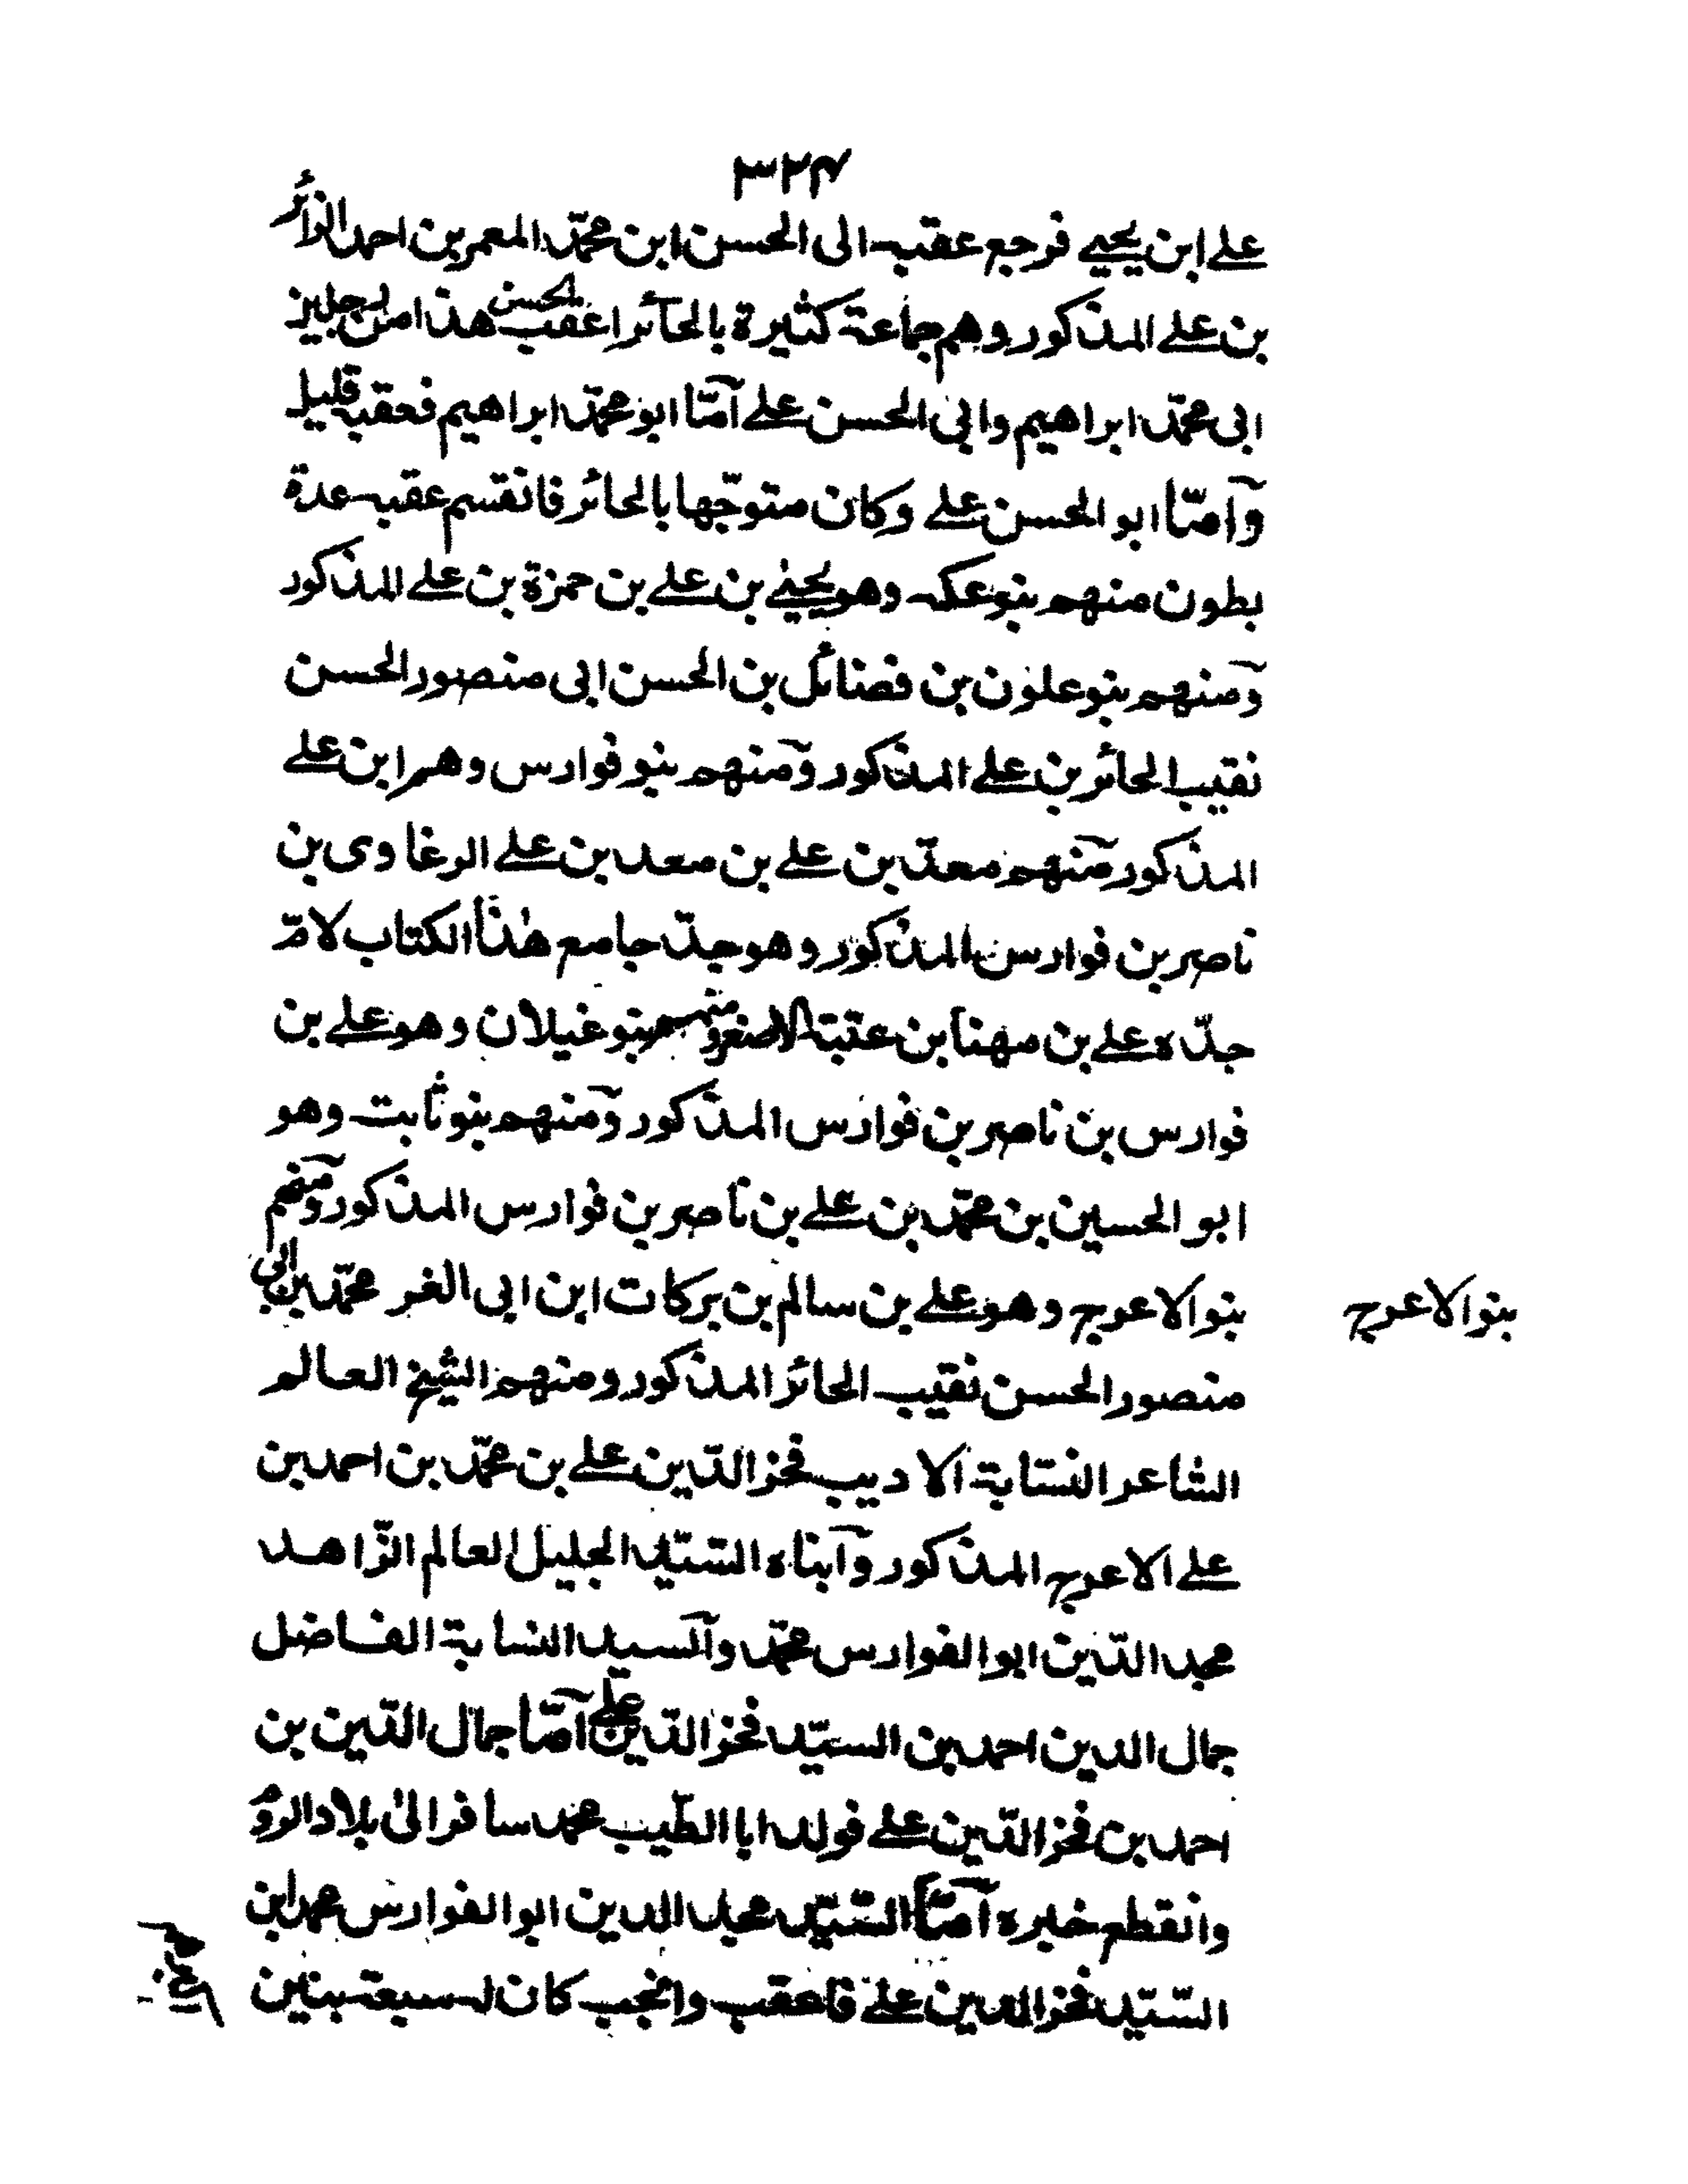 ٣٢٤
علے ابن يحيے فرجع عقبہ الى الحسن ابن محمّد المعمر بن احمد الزائر
بن علے المذكور وهم جماعة كثيرة بالحآئر اعقب الحسن هذا من رجلين
ابى محمّد ابراهيم وابى الحسن علے آمّا ابو محمّد ابراهيم فعقبہ قليل
وآمّا ابو الحسن علے وكان متوجّها بالحائر فانقسم عقبہ عدة
بطون منهم بنو عكہ وهو يحيٰے بن علے بن حمزة بن علے المذكور
ومنهم بنو علون بن فضائل بن الحسن ابى منصور الحسن
نقيب الحائر بن علے المذكور ومنهم بنو فوارس وهو ابن علے
المذكور منهم معدّ بن علے بن معد بن علے الرغاوى بن
ناصر بن فوارس المذكور وهو جدّ جامع هٰذا الكتاب لامّ
جدّه علے بن مهنا بن عتبة الاصغر ومنهم بنو غيلان وهو علے بن
فوارس بن ناصر بن فوارس المذكور ومنهم بنو ثابت وهو
ابو الحسين بن محمّد بن علے بن ناصر بن فوارس المذكور ومنهم
بنو الاعرج وهو علے بن سالم بن بركات ابن ابى الغر محمّد بن ابى
بنو الاعرج
منصور الحسن نقيب الحائر المذكور ومنهم الشيخ العالم
الشاعر النسّابة الاديب فخر الدّين علے بن محمّد بن احمد بن
علے الاعرج المذكور وآبناه السّيّد الجليل العالم الزّاهد
مجد الدّين ابو الفوارس محمّد وآلسيد النسابة الفاضل
جمال الدين احمد بن السيّد فخر الدّين علے آمّا جمال الدّين بن
احمد بن فخر الدّين علے فولد ابا الطّيب محمد سافر الىٰ بلاد الروم
وانقطع خبره آمّا السّيّد مجد الدين ابو الفوارس محمد ابن
السّيّد فخر الدين علے فاعقب وانجب كان لہ سبعة بنين